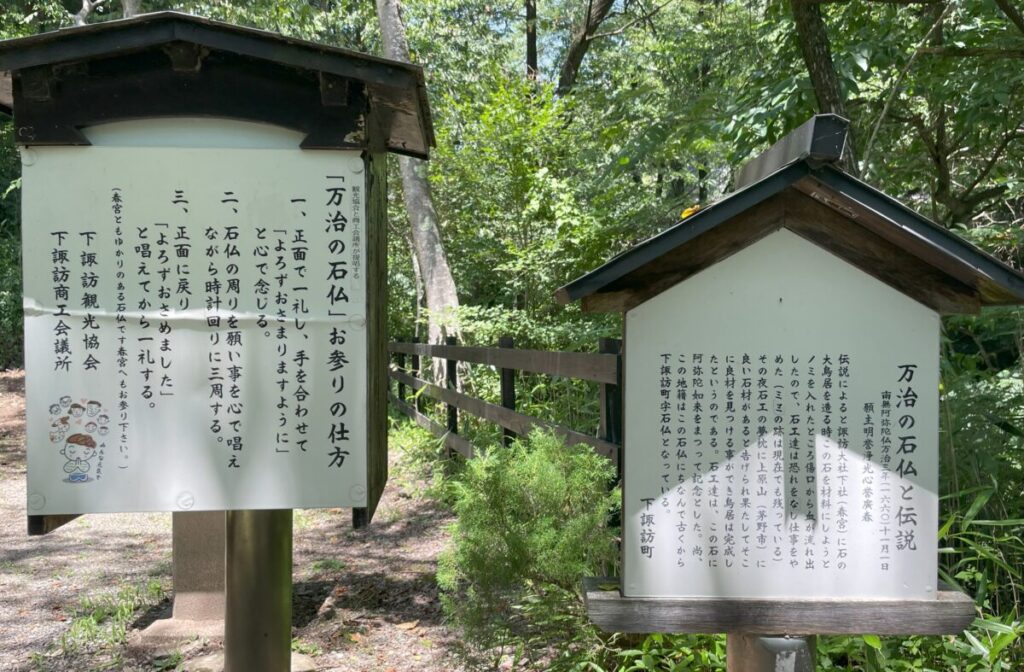 観光協会と商工会議所が提唱する
「万治の石仏」お参りの仕方
一、正面で一礼し、手を合わせて
「よろずおさまりますように」
と心で念じる。
二、石仏の周りを願い事を心で唱え
ながら時計回りに三周する。
三、正面に戻り
「よろずおさめました」
と唱えてから一礼する。
(春宮ともゆかりのある石仏です春宮へもお参り下さい。)
下諏訪観光協会
下諏訪商工会議所
みんな元気
万治の石仏と伝説
南無阿弥陀仏万治三年(一六六〇)十一月一日
願主明誉浄光心誉廣春
伝説によると諏訪大社下社(春宮)に石の
大鳥居を造る時、この石を材料にしようと
ノミを入れたところ傷口から血が流れ出
したので、石工達は恐れをなし仕事をや
めた(ミミの跡は現在でも残っている)
その夜石工の夢枕に上原山(茅野市)に
良い石材があると告げられ果たしてそこ
に良材を見つける事ができ鳥居は完成し
たというのである。石工達は、この石に
阿弥陀如来をまつって記念とした。尚、
この地籍はこの石仏にちなんで古くから
下諏訪町字石仏となっている。
下諏訪町